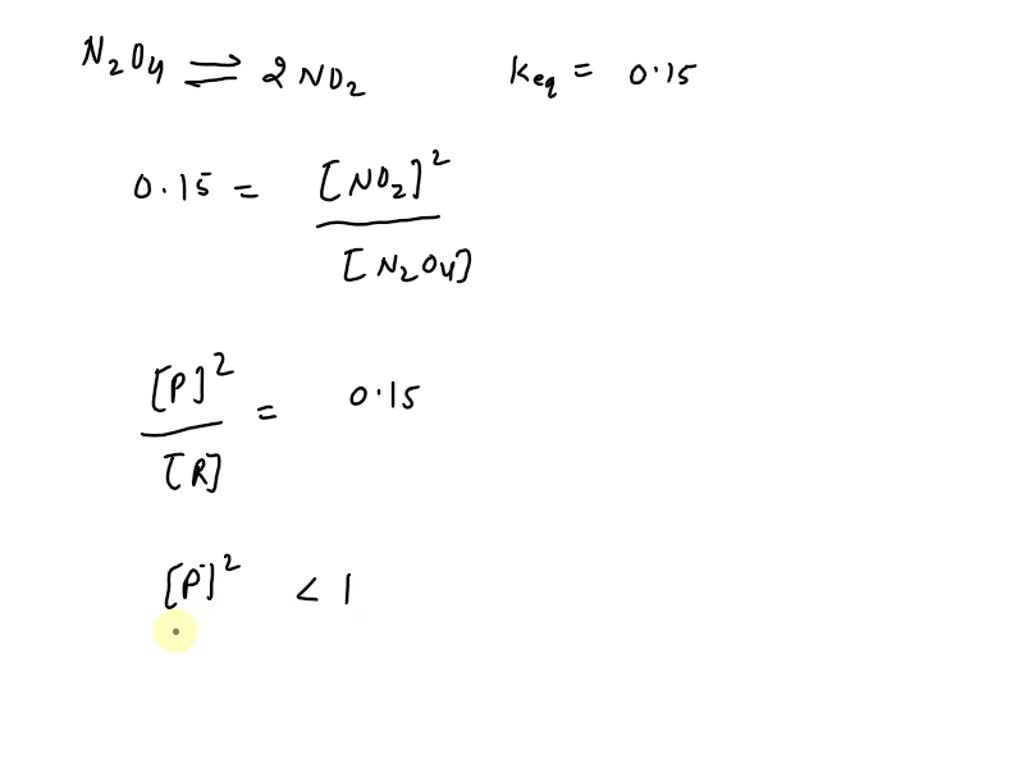 N₂O₄ ⇌ 2NO₂ Keq = 0.15
0.15 = [NO₂]² / [N₂O₄]
[P]² / [R] = 0.15
[P]² < 1